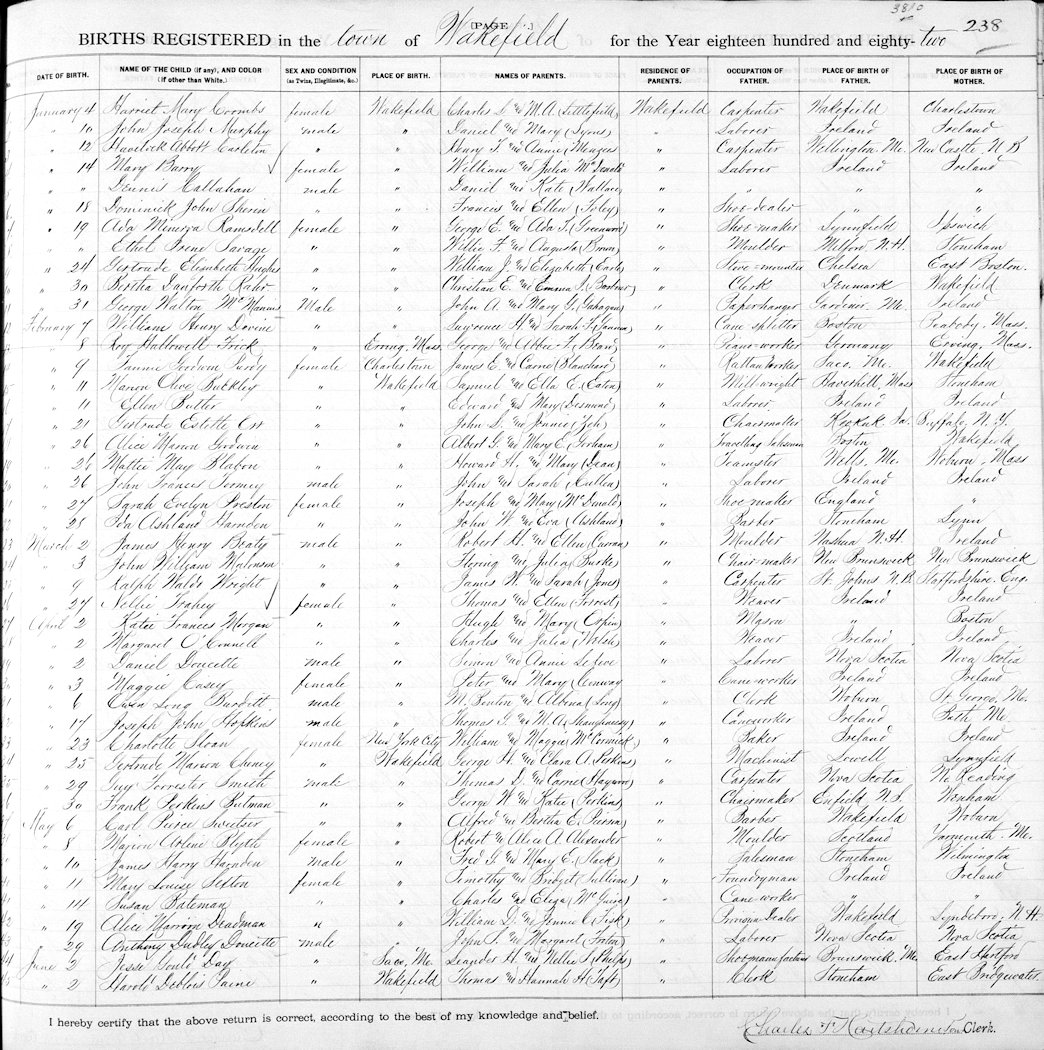 3810
[PAGE .] 238
BIRTHS REGISTERED in the town of Wakefield for the Year eighteen hundred and eighty-two
DATE OF BIRTH. NAME OF THE CHILD (if any), AND COLOR (if other than White.) SEX AND CONDITION (as Twins, Illegitimate, &c.) PLACE OF BIRTH. NAMES OF PARENTS. RESIDENCE OF PARENTS. OCCUPATION OF FATHER. PLACE OF BIRTH OF FATHER. PLACE OF BIRTH OF MOTHER.
January 4 Harriet Mary Coombs female Wakefield Charles S. and M. A. (Littlefield) Wakefield Carpenter Wakefield Charlestown
" 10 John Joseph Murphy male " Daniel and Mary (Lyons) " Laborer Ireland Ireland
" 12 Havelick Abbott Carleton " Henry T. and Annie Menzees " Carpenter Wellington Me. New Castle, N B
" 14 Mary Barry female " William and Julia McDonald " Laborer Ireland Ireland
" " Dennis Callahan male " Daniel and Kate (Wallace) " " " "
" 18 Dominick John Sherin " " Francis and Ellen (Foley) " Shoe-dealer " "
" 19 Ada Minerva Ramsdell female " George E. and Ada F. (Greenwood) " Shoe-maker Lynnfield Ipswich
" " Ethel Irene Savage " " Willie F. and Augusta (Brown) " Moulder Milford N.H. Stoneham
" 24 Gertrude Elizabeth Hughes " " William J. and Elizabeth (Earle) " Stove-mounter Chelsea East Boston.
" 30 Bertha Danforth Rahr " " Christian E. and Emma " Clerk Denmark Wakefield
" 31 George Walton McManus Male " John A. and Mary G. (Gahagan) " Paperhanger Gardiner Me. Ireland
February 7 William Henry Devine " " Lawrence H. and Sarah F. " Cane splitter Boston Peabody, Mass.
" 8 Roy Hallowell Frick " Erving, Mass. George and Abbie F. " Piano-worker Germany Erving, Mass.
" 9 Fannie Godwin Purdy female Charlestown James E. and Carrie (Blanchard) " Rattan Worker Saco, Me. Wakefield
" 11 Marion Olive Buckley " Wakefield Samuel and Ella E. (Eaton) " Mill-wright Haverhill Mass Stoneham
" 11 Ellen Butler " " Edward and Mary (Desmond) " Laborer Ireland Ireland
" 21 Gertrude Estelle Orr " " John S. and Jennie (Zeh) " Chairmatter Keokuk Ia. Buffalo, N.Y.
" 26 Alice Marion Godwin " " Albert G. and Mary E. (Gorham) " Travelling Salesman Boston Wakefield
" 26 Mattie May Blabon " " Howard H. and Mary (Dean) " Teamster Wells, Me. Woburn, Mass
" 26 John Francis Toomey male " John and Sarah (Cullen) " Laborer Ireland Ireland
" 27 Sarah Evelyn Preston female " Joseph and Mary (McDonald) " Shoe-maker England "
" 28 Ida Ashland Harnden " " John W. and Eva (Ashland) " Barber Stoneham Lynn
March 2 James Henry Beaty male " Robert H. and Ellen (Curran) " Moulder Nashua N.H Ireland
" 3 John William Malonson " " and Julia (Burke) " Chair-maker New Brunswick New Brunswick
" 9 Ralph Waldo Wright " James W. and Sarah (Jones) " Carpenter St. Johns N.B. Staffordshire, Eng.
" 27 Nellie Leahey female " Thomas and Ellen (Forrest) " Weaver Ireland Ireland
April 2 Katie Frances Morgan " " Hugh and Mary " Mason " Boston
" 2 Margaret O'Connell " " Charles and Julia (Welsh) " Ireland Ireland
" 2 Daniel Doucette male " Simon and Annie " Laborer Nova Scotia Nova Scotia
" 3 Maggie Casey female " Peter and Mary Conway " Cane-worker Ireland Ireland
" 6 Owen Long Burditt male " M. Benton and Albena (Long) " Clerk Woburn St. George, Me.
" 17 Joseph John Hopkins male " Thomas F. and M. A. (Shaughnessy) " Caneworker Ireland Bath Me.
" 23 Charlotte Sloan female New York City William and Maggie McCormick) " Baker Ireland Ireland
" 25 Gertrude Marion Cheney " Wakefield George H. and Clara A. Perkins " Machinist Lowell Lynnfield
" 29 Guy Forrester Smith male " Thomas D. and Carrie (Hayward) " Carpenter Nova Scotia No Reading
" 30 Frank Perkins Butman " " George W. and Katie (Perkins) " Chairmaker Enfield N.S. Wenham
May 6 Carl Pierce Sweetser " " Alfred and Bertha E. " Barber Wakefield Woburn
" 8 Marion Arlene Blyth female " Robert and Alice A. Alexander " Moulder Scotland Yarmouth, Me.
" 10 James Harry Harnden Male " Fred G. and Mary E. (Slack) " Salesman Stoneham Wilmington
" 11 Mary Louise Sexton female " Timothy and Bridget (Sullivan) " Foundryman Ireland Ireland
" 14 Susan Bateman " " Charles and Eliza McGuire) " Cane-worker " "
" 19 Alice Marrion Deadman " " William D. and Jennie C. Fisk) " Provision Dealer Wakefield Lyndeboro, N.H.
" 29 Anthony Dudley Doucette male " John S. and Margaret (Forton) " Laborer Nova Scotia Nova Scotia
June 2 Jesse Gould Day " Saco, Me. Leander H. and Nellie R. Phelps) " Shoe-manufacturer Brunswick Me East Hartford
" 2 Harold Deblois Paine " Wakefield Thomas and Hannah H. (Taft) " Clerk Stoneham East Bridgewater
I hereby certify that the above return is correct, according to the best of my knowledge and belief.
Charles F. Hartshorne Town Clerk.